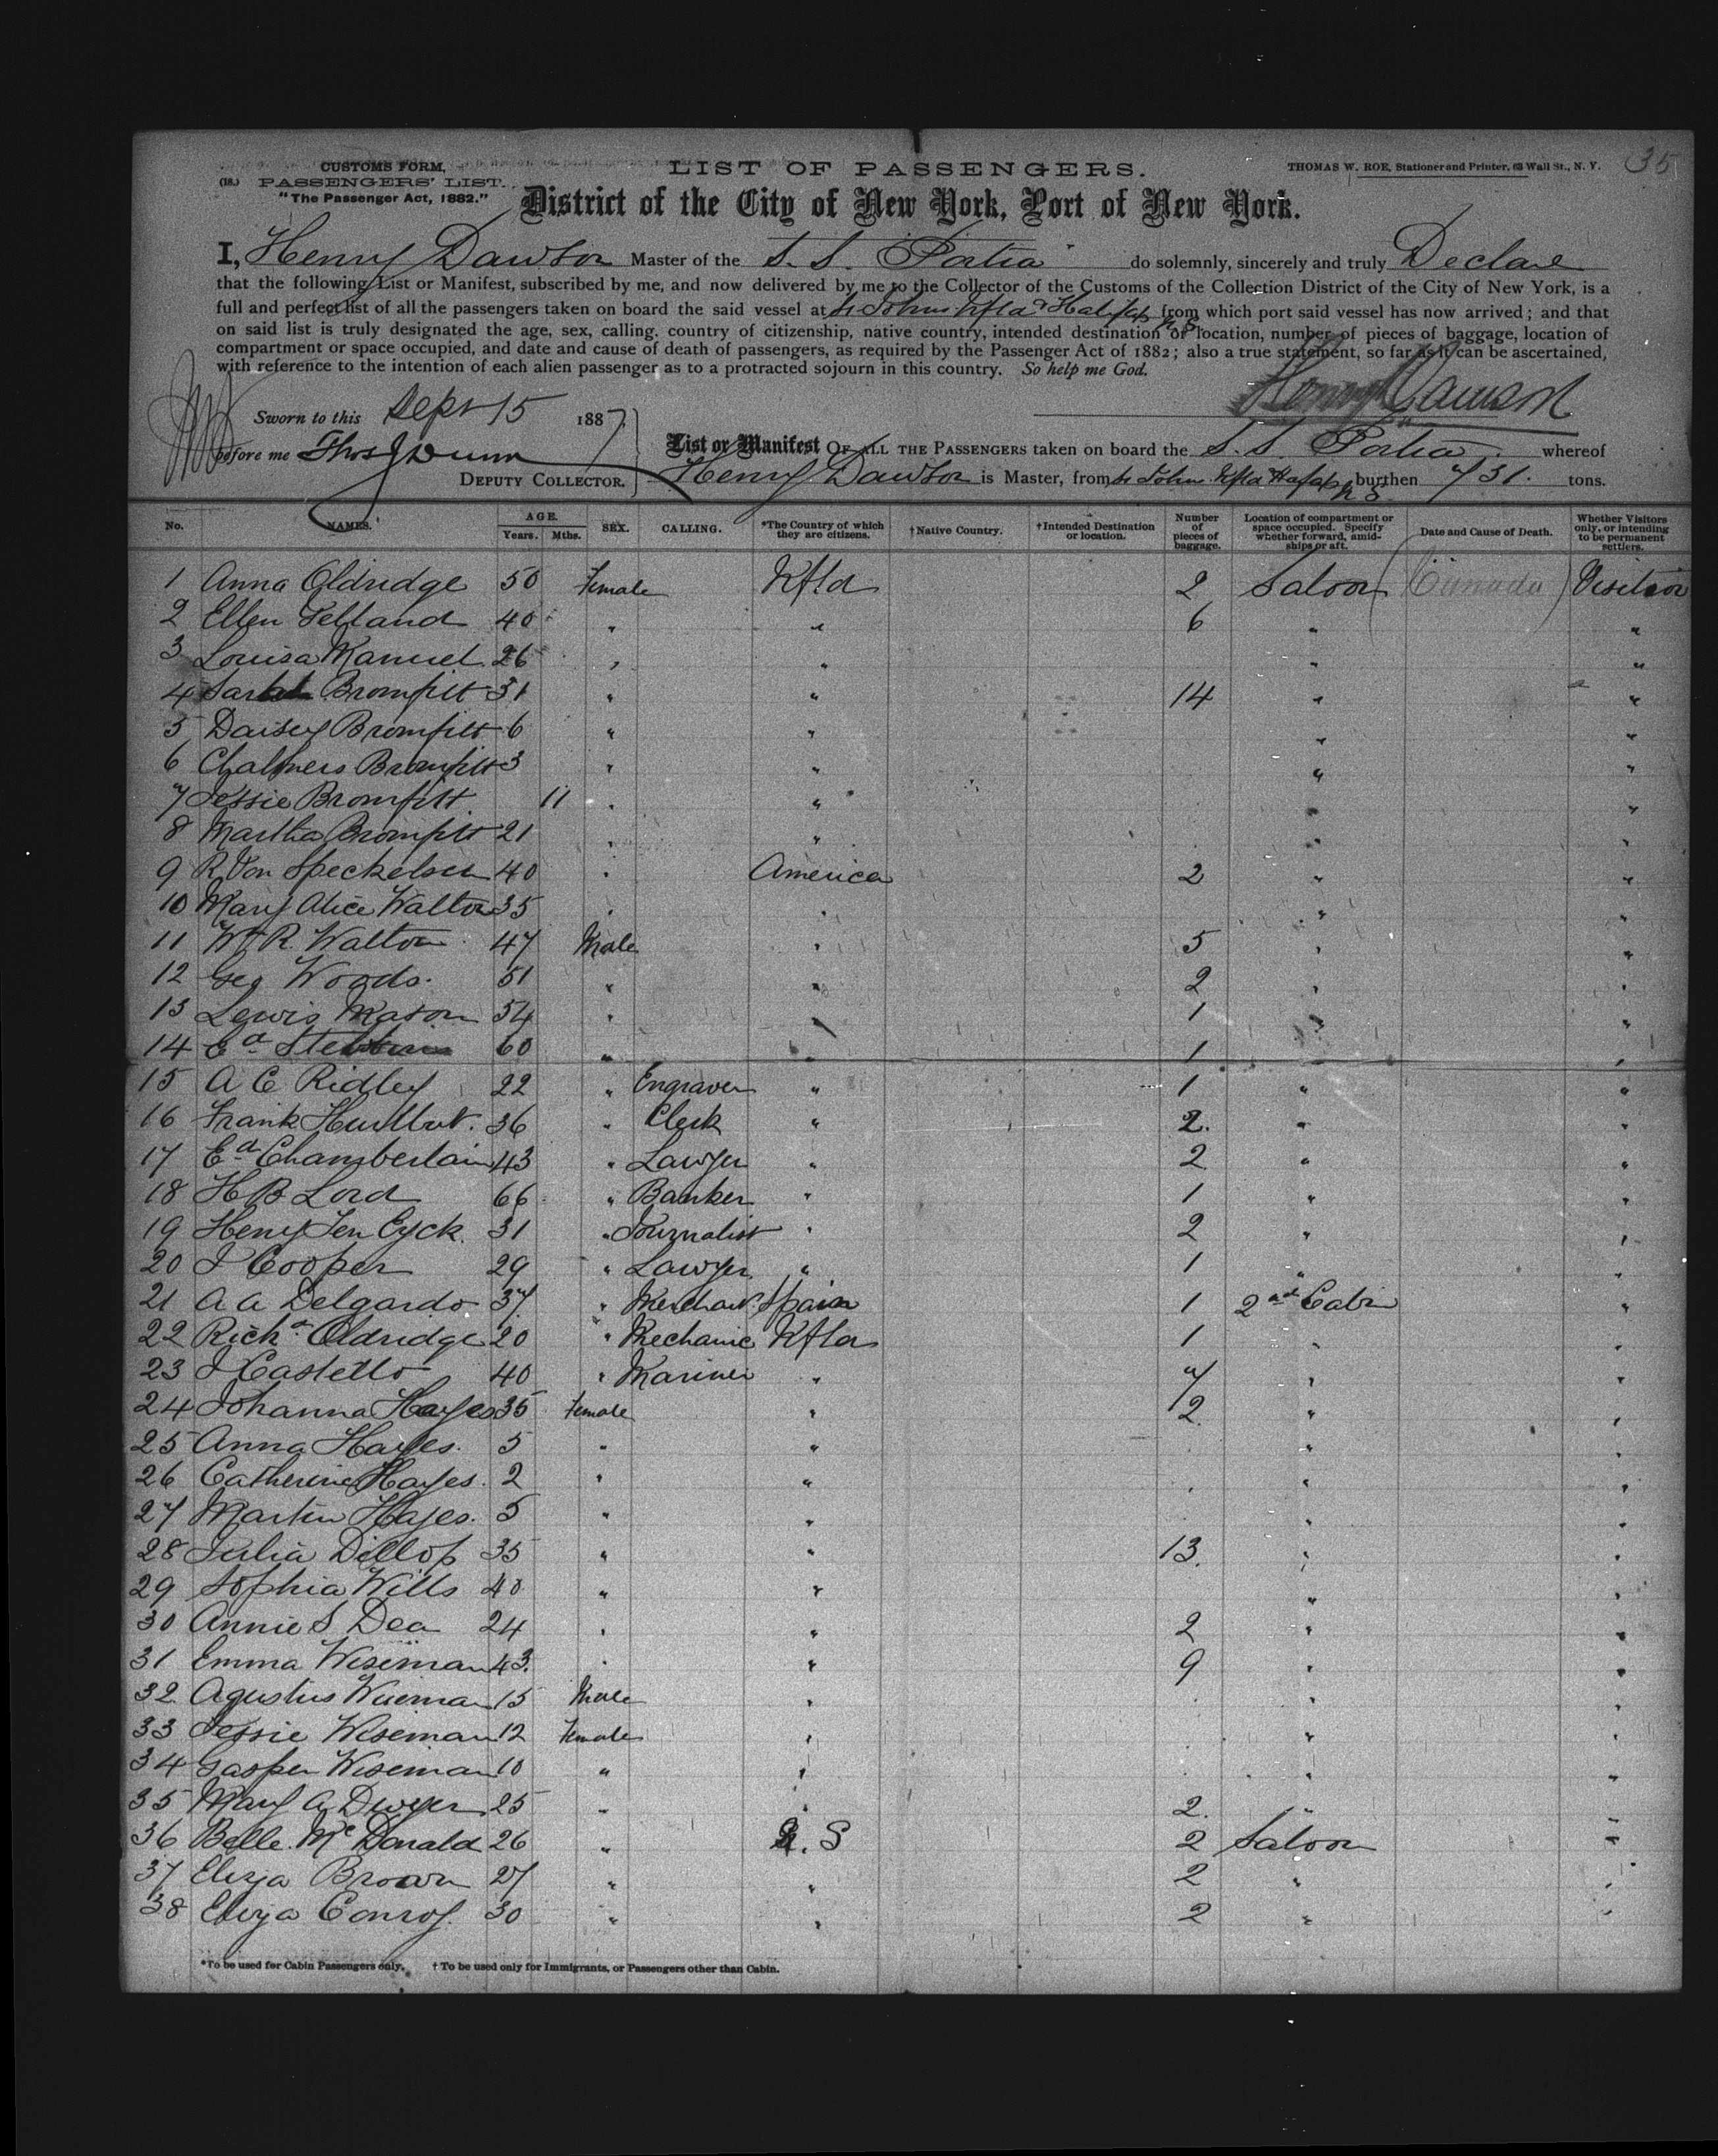 CUSTOMS FORM,
(18.) PASSENGERS' LIST.
"The Passenger Act, 1882."
LIST OF PASSENGERS.
THOMAS W. ROE, Stationer and Printer, 63 Wall St., N. Y.
35
District of the City of New York, Port of New York.
I, Henry Dawson Master of the S. S. Portia do solemnly, sincerely and truly Declare
that the following List or Manifest, subscribed by me, and now delivered by me to the Collector of the Customs of the Collection District of the City of New York, is a
full and perfect list of all the passengers taken on board the said vessel at St Johns Nfld & Halifax N S from which port said vessel has now arrived; and that
on said list is truly designated the age, sex, calling, country of citizenship, native country, intended destination or location, number of pieces of baggage, location of
compartment or space occupied, and date and cause of death of passengers, as required by the Passenger Act of 1882; also a true statement, so far as it can be ascertained,
with reference to the intention of each alien passenger as to a protracted sojourn in this country. So help me God.
Henry Dawson
Sworn to this Sept 15 1887.
before me Thos J Dunn
DEPUTY COLLECTOR.
List or Manifest OF ALL THE PASSENGERS taken on board the S. S. Portia whereof
Henry Dawson is Master, from St Johns Nfld Hafax N S burthen 731. tons.
No. NAMES. AGE. Years. Mths. SEX. CALLING. *The Country of which they are citizens. †Native Country. †Intended Destination or location. Number of pieces of baggage. Location of compartment or space occupied. Specify whether forward, amidships or aft. Date and Cause of Death. Whether Visitors only, or intending to be permanent settlers.
1 Anna Oldridge 50 Female Nfld 2 Saloon (Canada) Visitor
2 Ellen Felland 40 " " 6 " "
3 Louisa Manuel 26 " " " "
4 Sarah Bromfilt 31 " " 14 " "
5 Daisey Bromfilt 6 " " " "
6 Chalmers Bromfilt 3 " " " "
7 Jessie Bromfilt 11 " " " "
8 Martha Bromfilt 21 " " " "
9 R Von Speckelsen 40 " America 2 " "
10 Mary Alice Walton 35 " " " "
11 Wm R. Walton 47 Male " 5 " "
12 Geo Woods. 51 " " 2 " "
13 Lewis Mason 54 " " 1 " "
14 Ed 60 " " 1 " "
15 A E Ridley 22 " Engraver " 1 " "
16 Frank Hurlbut. 36 " Clerk " 2. " "
17 Ed Chamberlain 43 " Lawyer " 2 " "
18 H B Lord 66 " Banker " 1 " "
19 Henry Ten Eyck. 31 " Journalist " 2 " "
20 J Cooper 29 " Lawyer " 1 " "
21 A A Delgardo 37 " Merchant Spain 1 2nd Cabin "
22 Richd Oldridge 20 " Mechanic Nfld 1 " "
23 J Castello 40 " Mariner " 7 " "
24 Johanna Hayes 35 Female " 2. " "
25 Anna Hayes. 5 " " " "
26 Catherine Hayes. 2 " " " "
27 Martin Hayes. 5 " " " "
28 Julia Dillop 35 " " 13. " "
29 Sophia Wills 40 " " " "
30 Annie S Dea 24 " " 2 " "
31 Emma Wiseman 43. " " 9 " "
32 Agustus Wiseman 15 Male " " "
33 Jessie Wiseman 12 Female " " "
34 Gasper Wiseman 10 " " " "
35 Mary A Dwyer 25 " " 2. " "
36 Belle McDonald 26 " . S 2 Saloon "
37 Eliza Brown 27 " " 2 " "
38 Eliza Conroy. 30 " " 2 " "
*To be used for Cabin Passengers only. † To be used only for Immigrants, or Passengers other than Cabin.